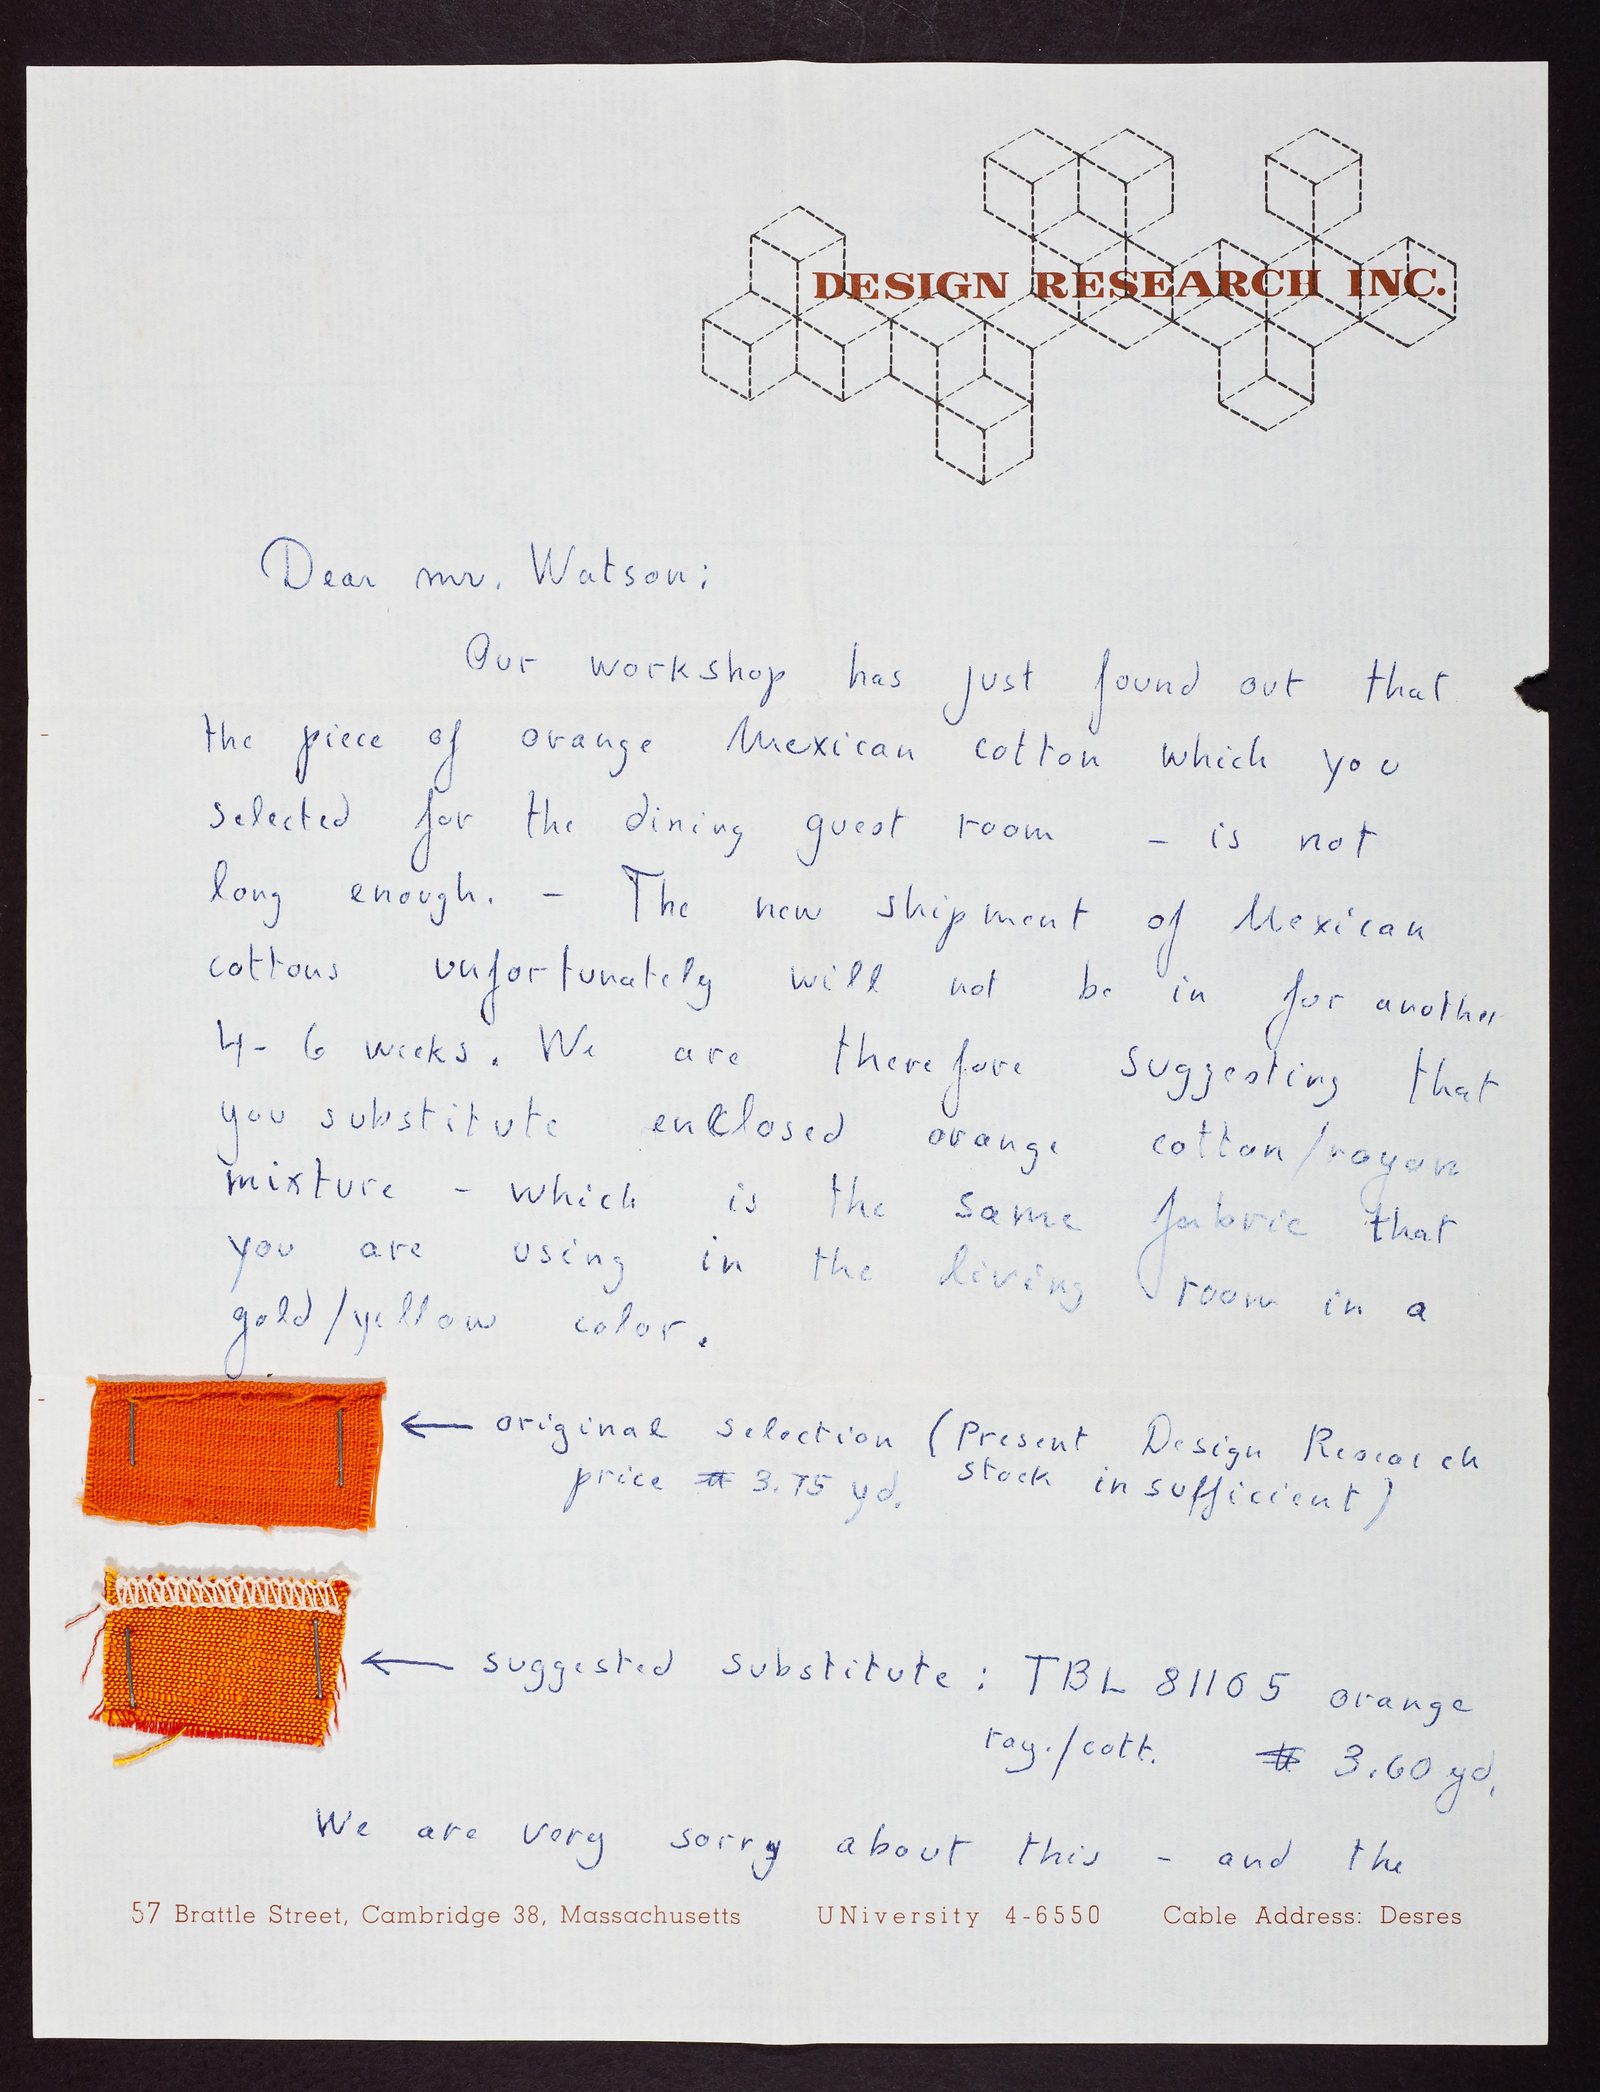 DESIGN RESEARCH INC.
Dear mr. Watson:
Our workshop has just found out that
the piece of orange Mexican cotton which you
selected for the dining guest room - is not
long enough. - The new shipment of Mexican
cottons unfortunately will not be in for another
4-6 weeks. We are therefore suggesting that
you substitute enclosed orange cotton/rayon
mixture - which is the same fabric that
you are using in the living room in a
gold/yellow color.
← original selection (Present Design Research
price $ 3.75 yd. stock insufficient)
← suggested substitute: TBL 81105 orange
ray./cott. $ 3.60 yd.
We are very sorry about this - and the
57 Brattle Street, Cambridge 38, Massachusetts UNiversity 4-6550 Cable Address: Desres